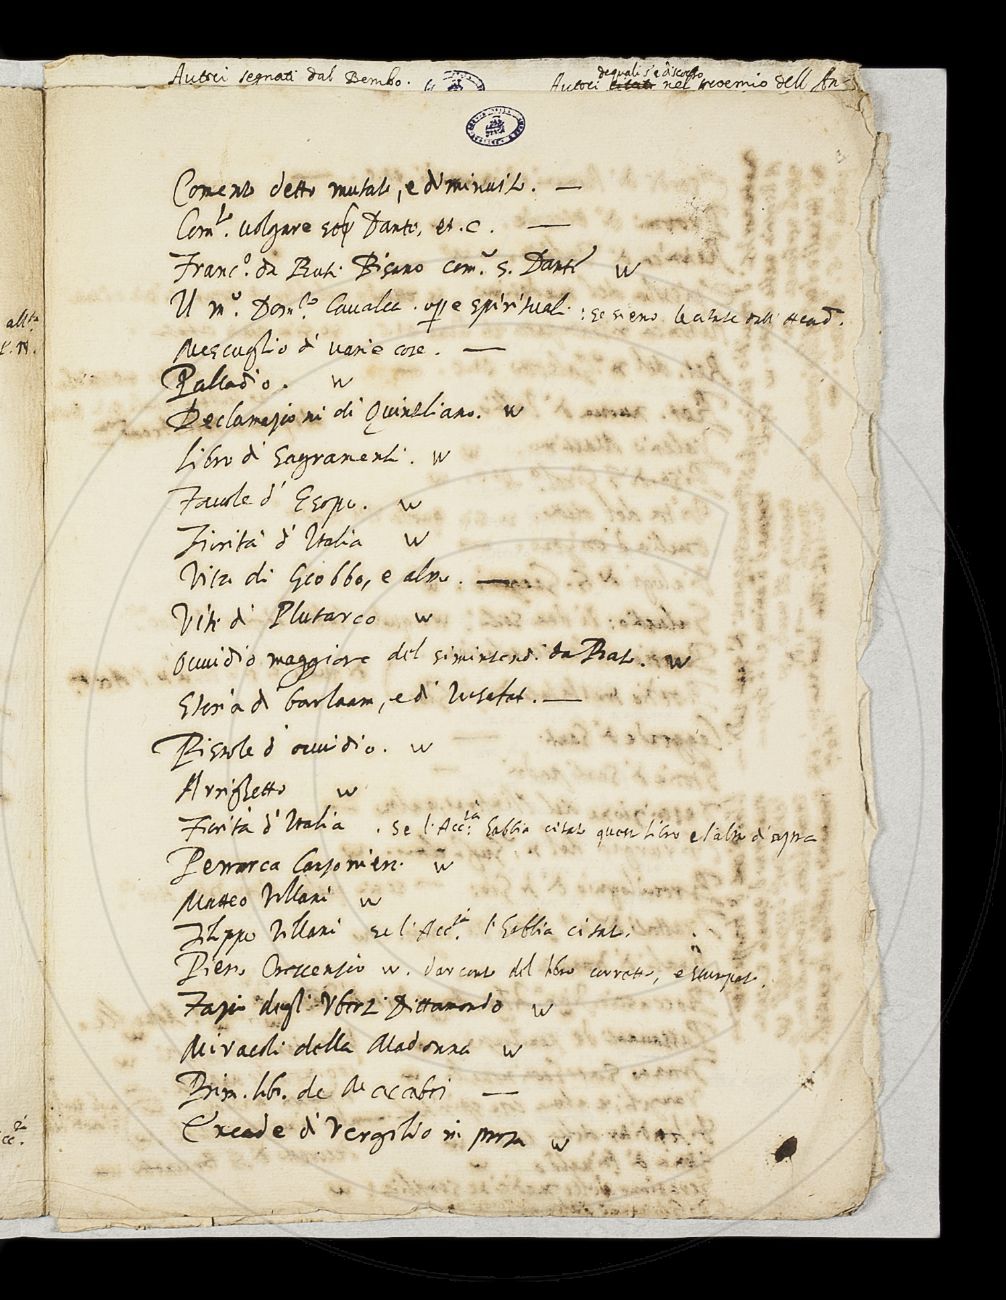 Autori segnati dal Bembo.
de quali s'è discorso
Autori citati nel proemio dell An
3
Comento detto mutato, e diminuito. —
Com.to volgare sop.a Dante, et. c. —
Franc.o da Buti Pisano com.o s. Dante w
Il m.o Dom.co Caualca. opp e spirituali: se sieno le citate dall'
Mescuglio di uarie cose. —
Palladio. w
Declamazioni di Quintiliano. w
Libro di Sagramenti. w
Fauole d' Esopo. w
Fiorita d' Italia w
Vita di Giobbo, e altro. —
Vite di Plutarco w
Ouuidio maggiore del simintendi da Prato. w
Storia di barlaam, e di Iosafat. —
Pistole d' ouuidio. w
Arrighetto w
Fiorita d' Italia. se l'Acc.ia l'habbia citato questo libro e l'altro di sopra
Petrarca Canzoniere. w
Matteo Villani w
Filippo Villani se l'Acc.ia l'habbia citato.
Piero Crescenzio w. dar conto del libro corretto, e stampato.
Fazio degli Vberti Dittamondo w
Miracoli della Madonna w
Prim. lib. de Macabei —
Eneade di Vergilio in prosa w